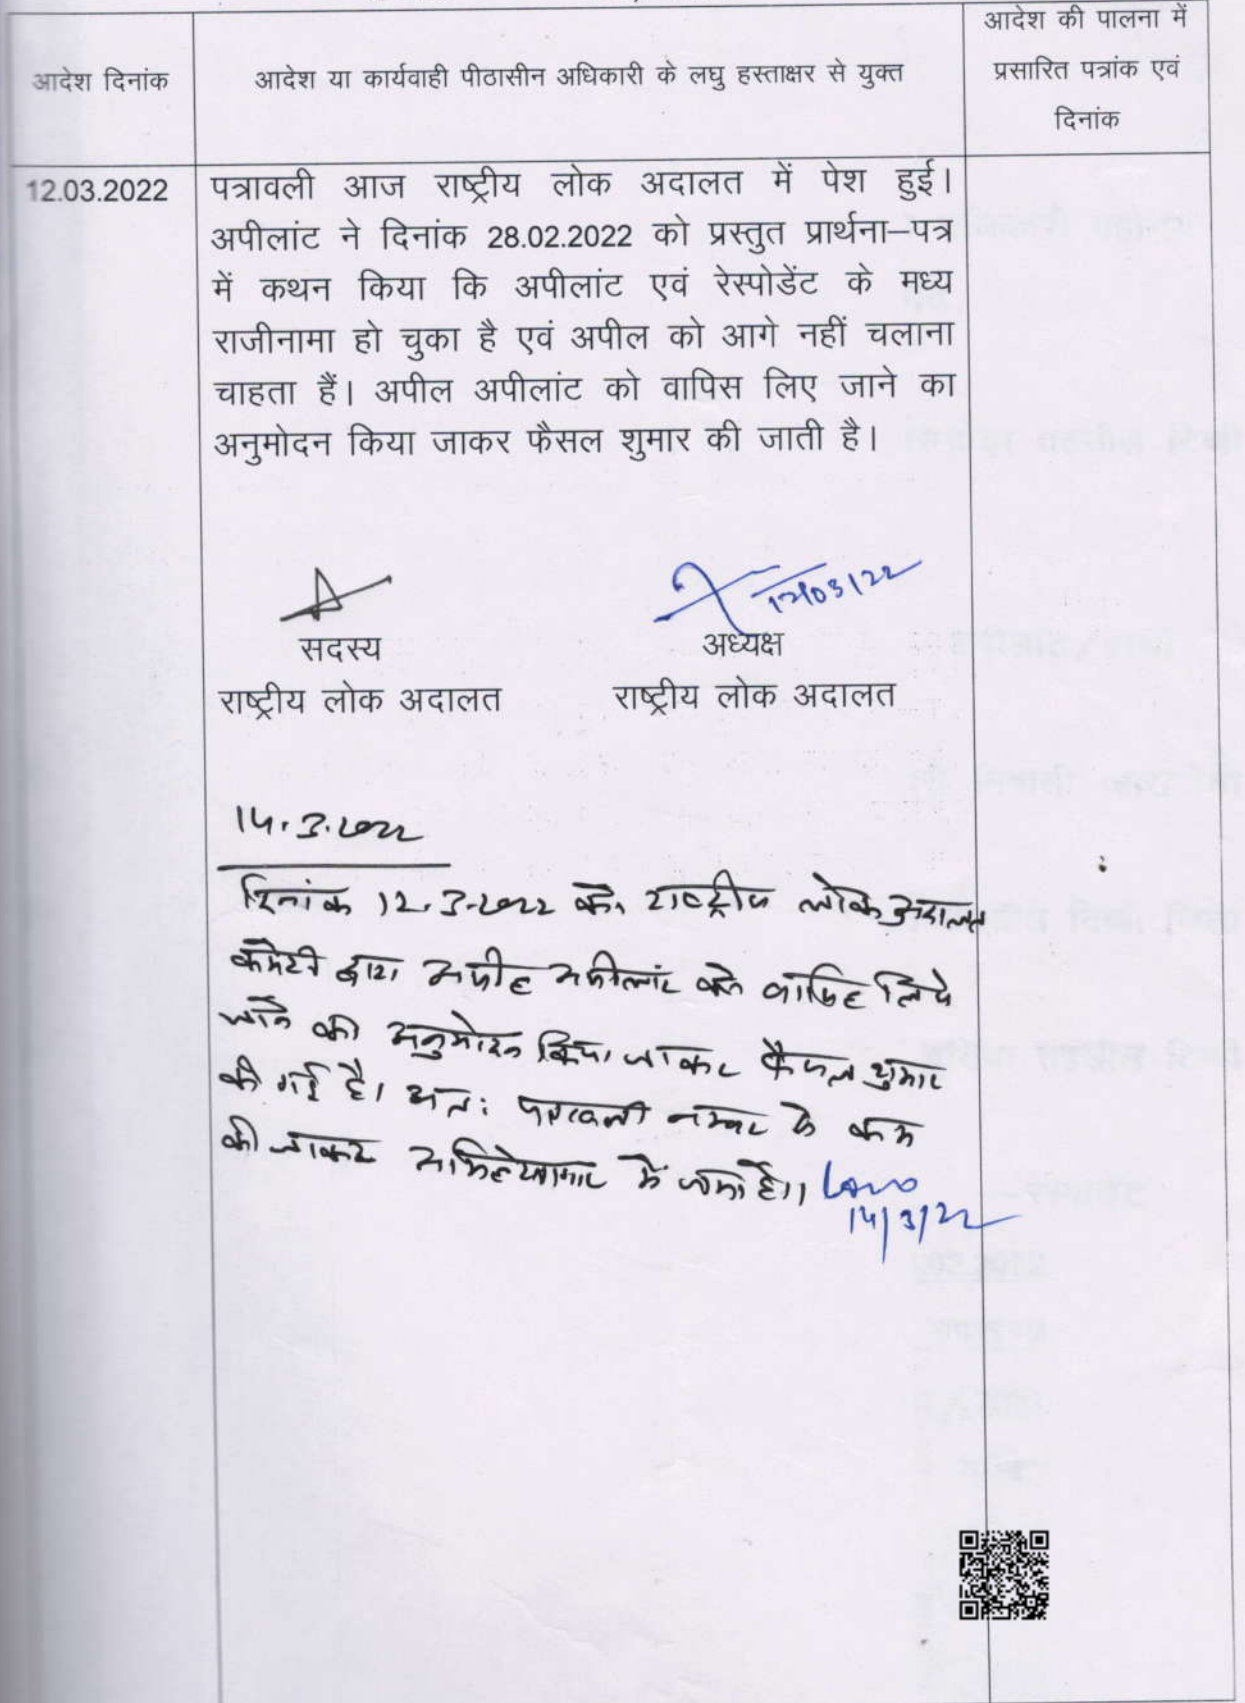 आदेश दिनांक
आदेश या कार्यवाही पीठासीन अधिकारी के लघु हस्ताक्षर से युक्त
आदेश की पालना में
प्रसारित पत्रांक एवं
दिनांक
12.03.2022
पत्रावली आज राष्ट्रीय लोक अदालत में पेश हुई।
अपीलांट ने दिनांक 28.02.2022 को प्रस्तुत प्रार्थना–पत्र
में कथन किया कि अपीलांट एवं रेस्पोडेंट के मध्य
राजीनामा हो चुका है एवं अपील को आगे नहीं चलाना
चाहता हैं। अपील अपीलांट को वापिस लिए जाने का
अनुमोदन किया जाकर फैसल शुमार की जाती है।
12/03/22
सदस्य
अध्यक्ष
राष्ट्रीय लोक अदालत
राष्ट्रीय लोक अदालत
14.3.2022
दिनांक 12.3.2022 को राष्ट्रीय लोक अदालत
कमेटी द्वारा अपील अपीलांट को वापिस लिये
जाने का अनुमोदन किया जाकर फैसल शुमार
की गई है। अतः पत्रावली नम्बर से कम
की जाकर अभिलेखागार में जमा हो।
14/3/22